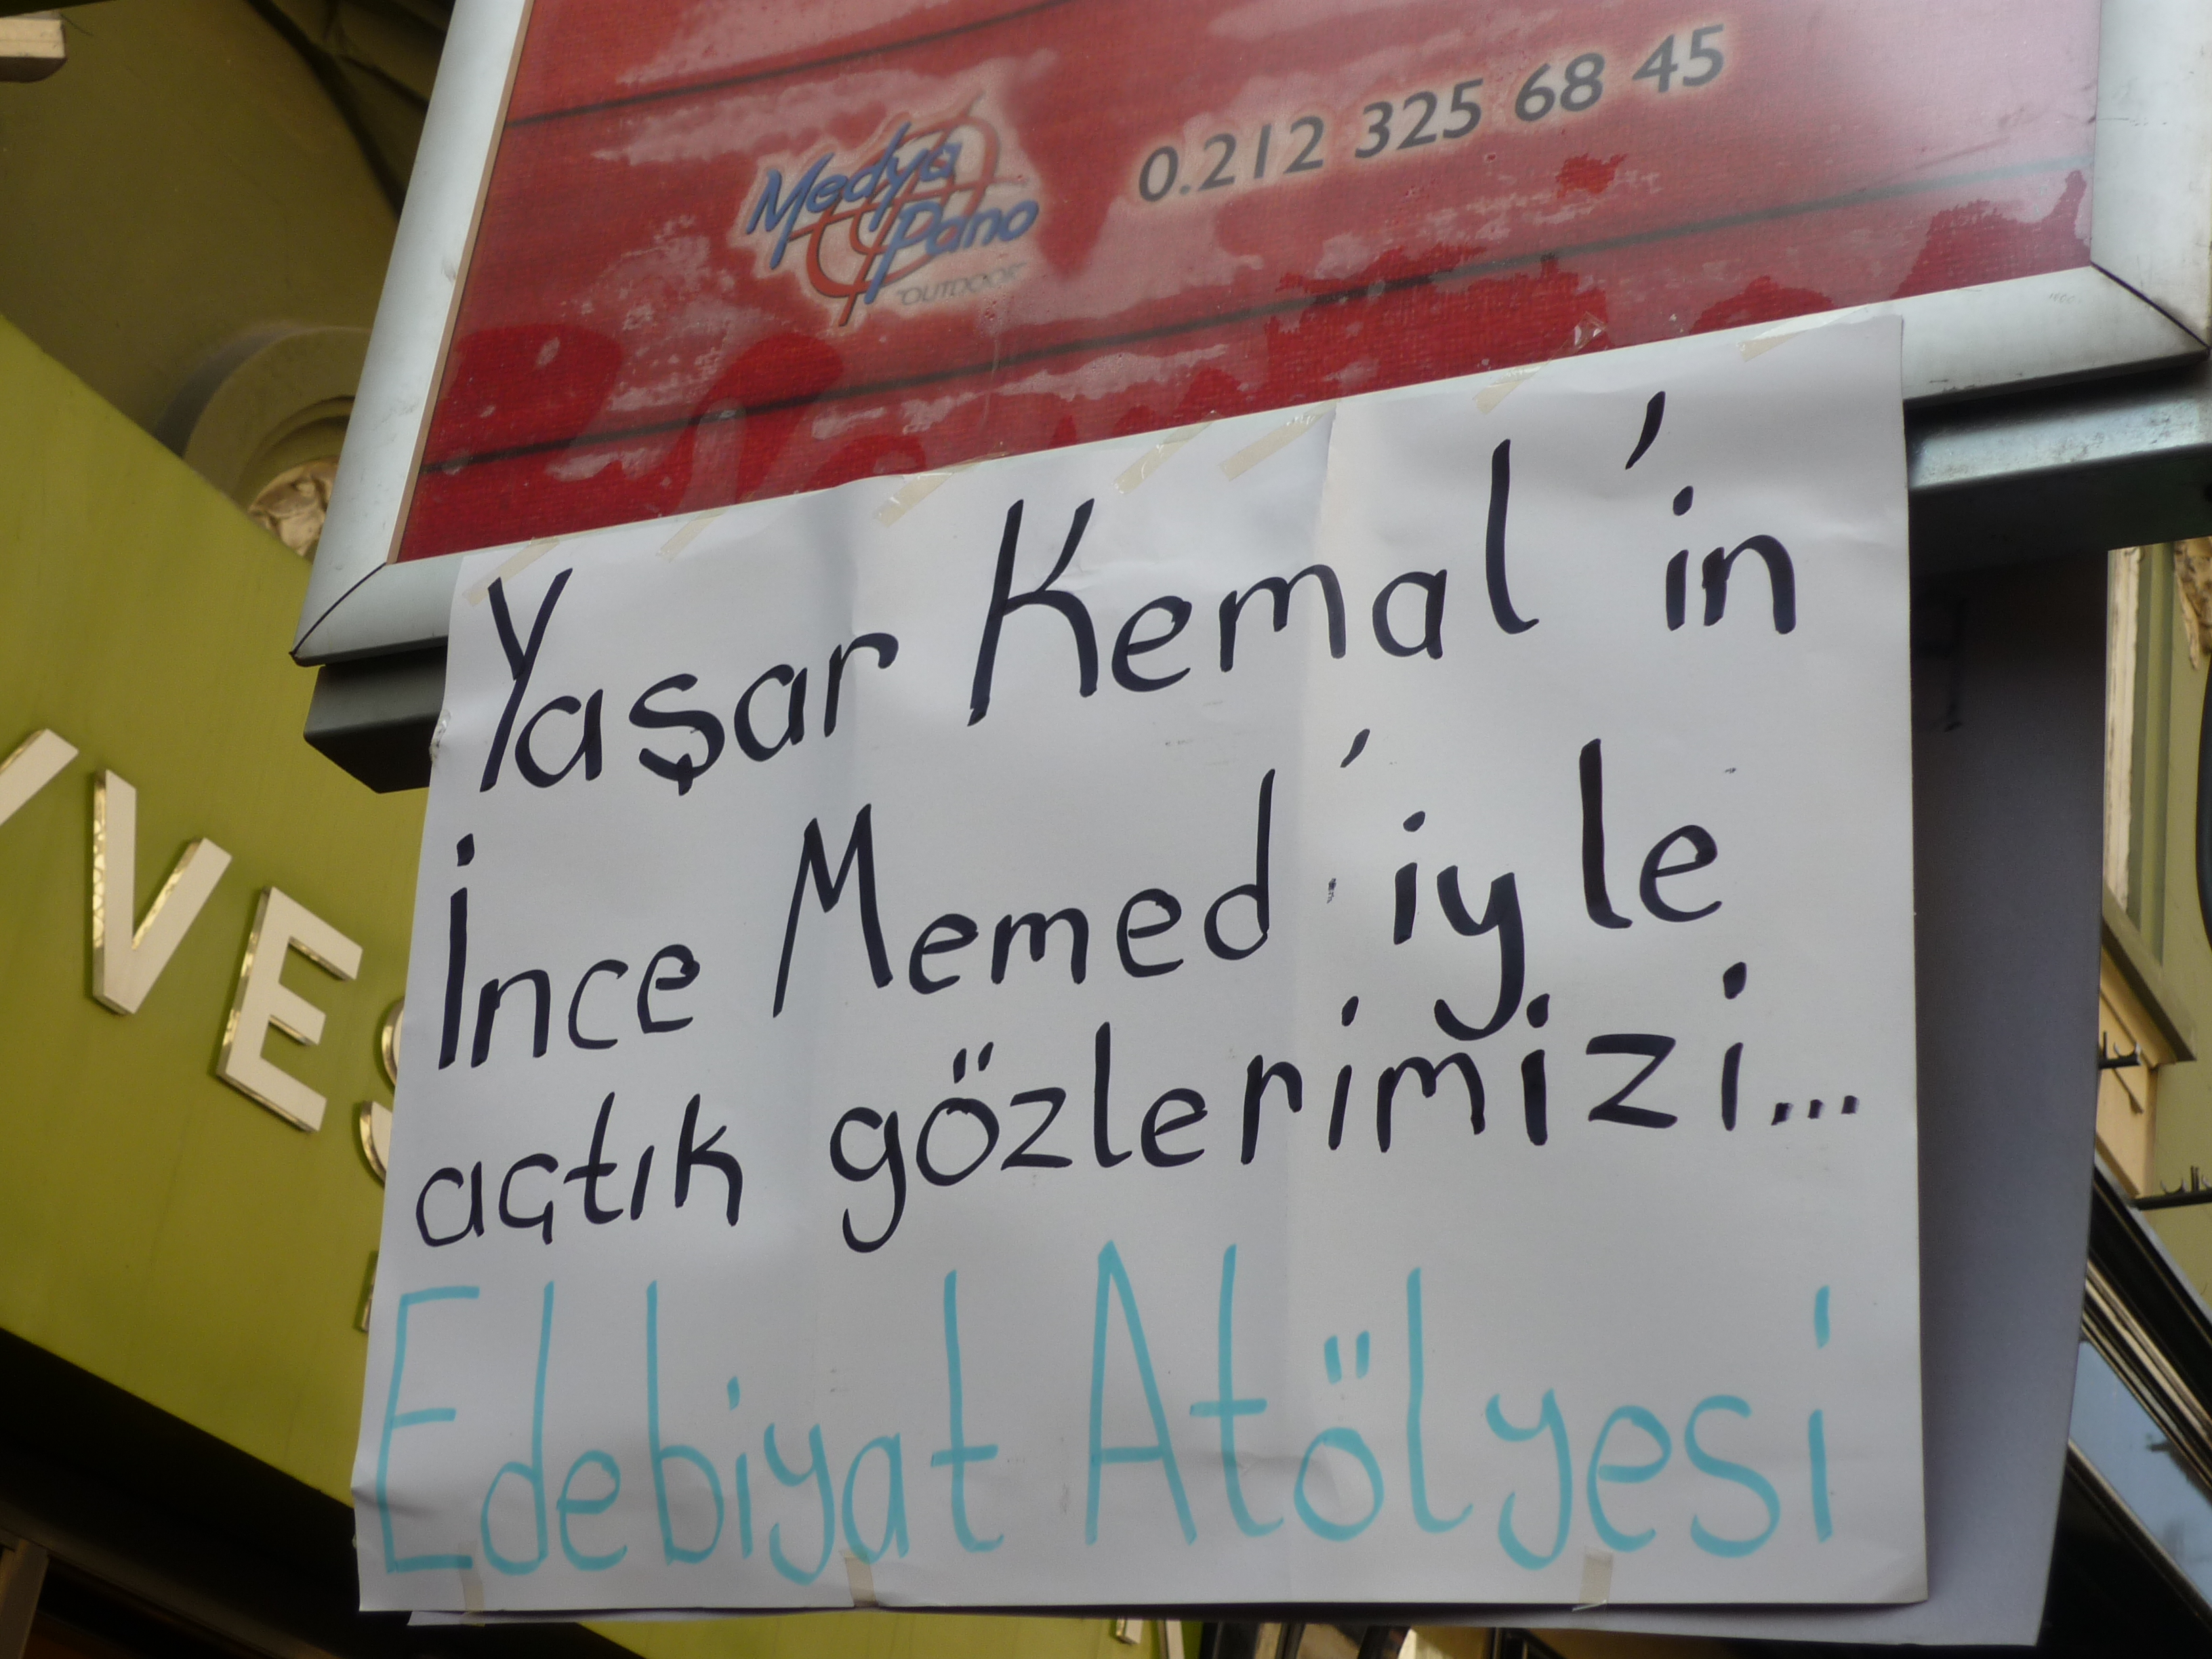 Medya
Pano
OUTDOOR
0.212 325 68 45
Yaşar Kemal'in
İnce Memed'iyle
açtık gözlerimizi...
Edebiyat Atölyesi
YVES